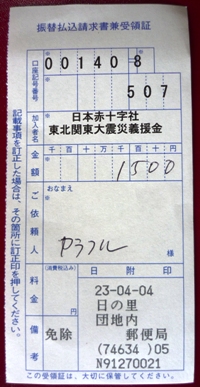 振替払込請求書兼受領証
口座記号番号
00140 8
507
加入者名
日本赤十字社
東北関東大震災義援金
金額
千 百 十 万 千 百 十 円
1500
ご依頼人
おなまえ
カラフル
様
料金
(消費税込み)
日 附 印
備考
免除
23-04-04
日の里
団地内
郵便局
(74634 )05
N91270021
記載事項を訂正した場合は、その箇所に訂正印を押してください。
この受領証は、大切に保管してください。